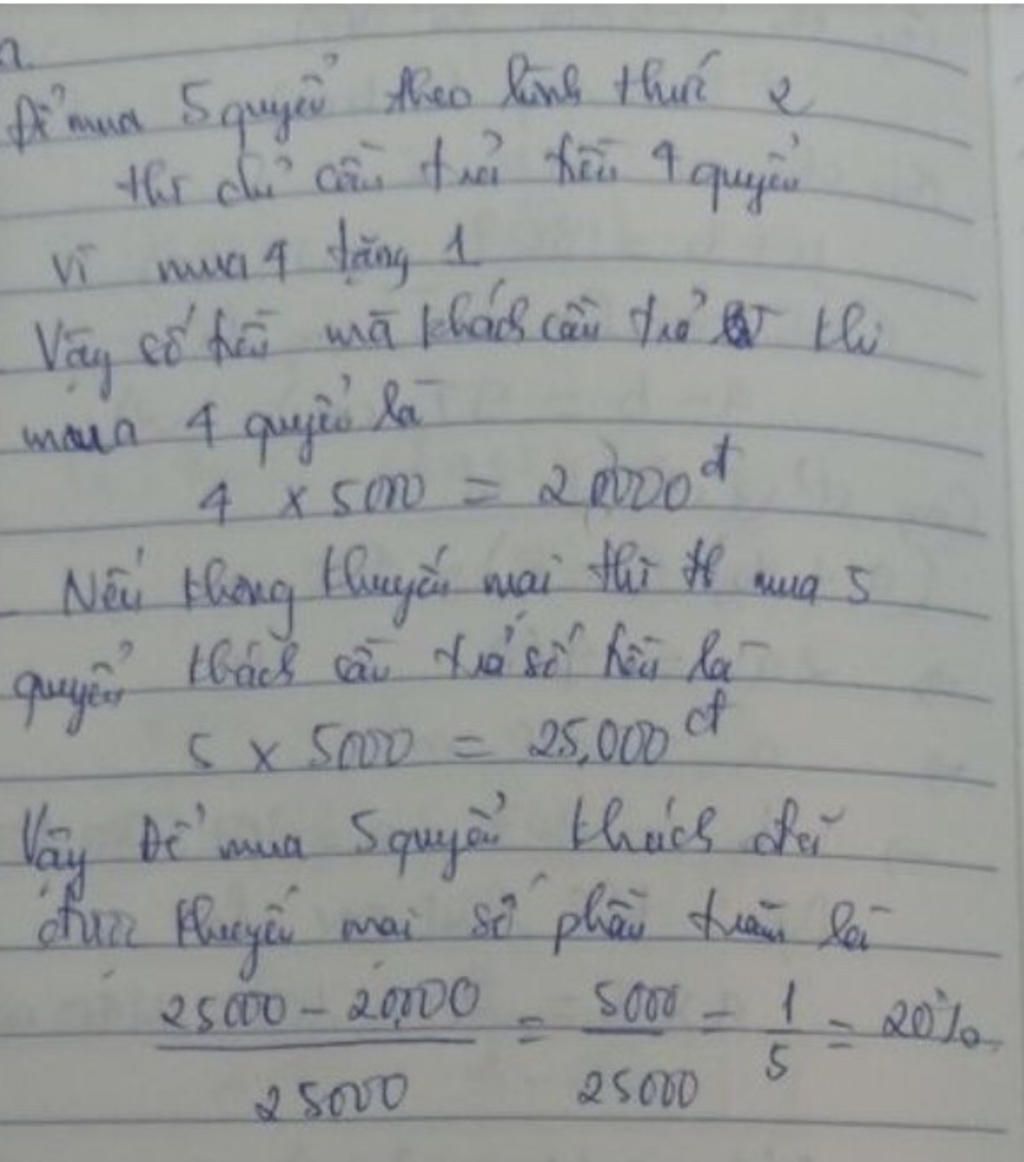 a.
Để mua 5 quyển theo hình thức 2
thì chỉ cần trả tiền 4 quyển
vì mua 4 tặng 1
Vậy số tiền mà khách cần trả khi
mua 4 quyển là
4 × 5000 = 20000đ
Nếu không khuyến mại thì mua 5
quyển khách cần trả số tiền là
5 × 5000 = 25,000đ
Vậy Để mua 5 quyển khách đã
được khuyến mại số phần trăm là
25000 - 20,000 / 25000 = 5000 / 25000 = 1 / 5 = 20%